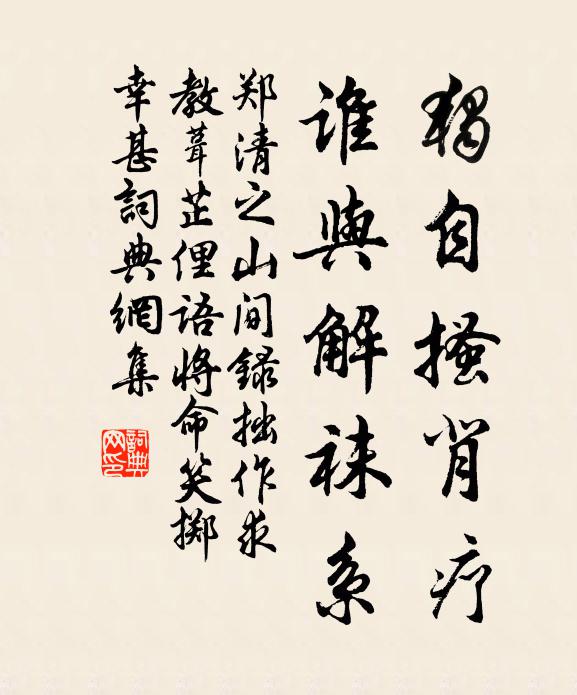 獨自搔背疗
誰與解袜系
郑清之山间録拙作求
教葺芷俚语将命笑掷
幸甚詞典網集
詞典網印